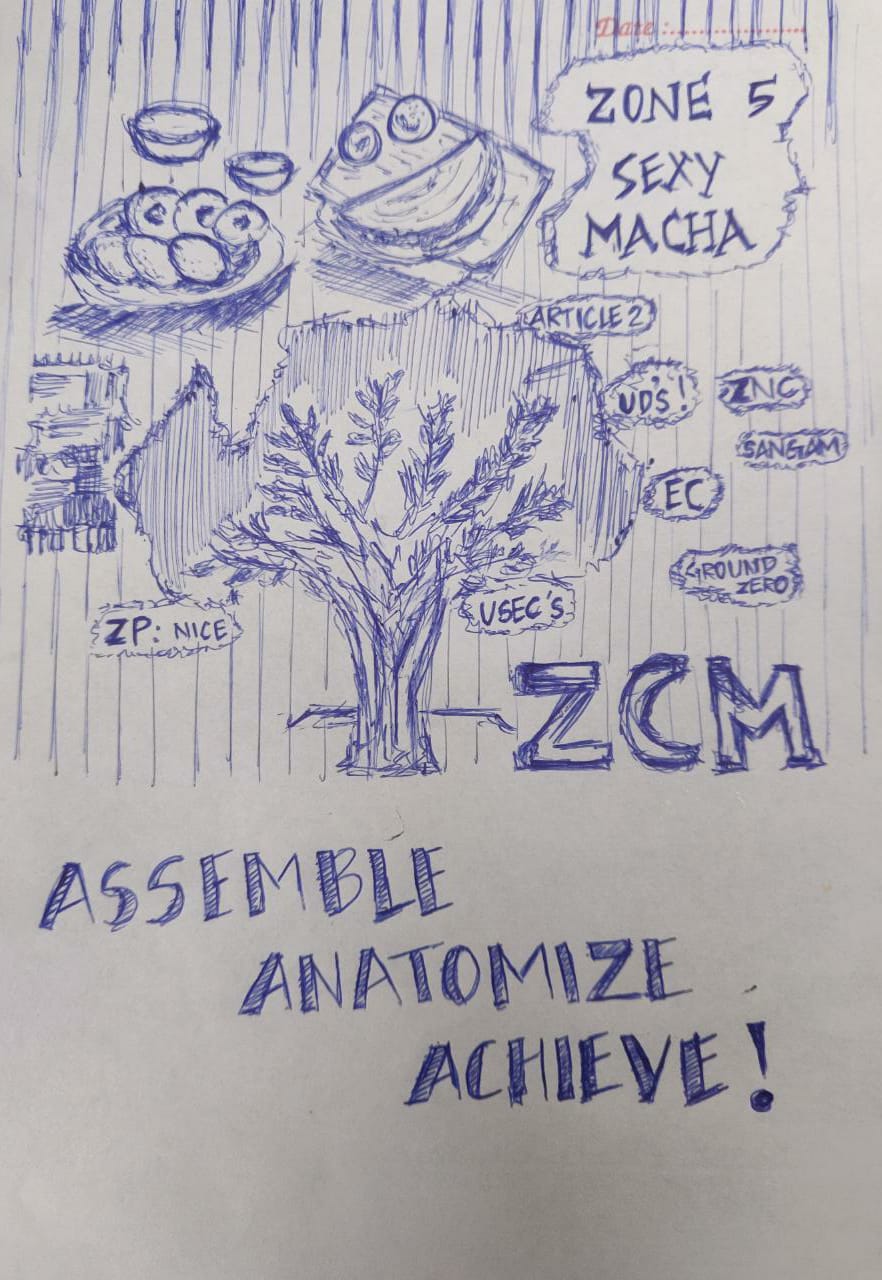 Date :....................
ZONE 5
SEXY
MACHA
ARTICLE 2
UD'S !
ZNC
SANGAM
EC
GROUND
ZERO
ZP: NICE
USEC'S
ZCM
ASSEMBLE
ANATOMIZE
ACHIEVE!